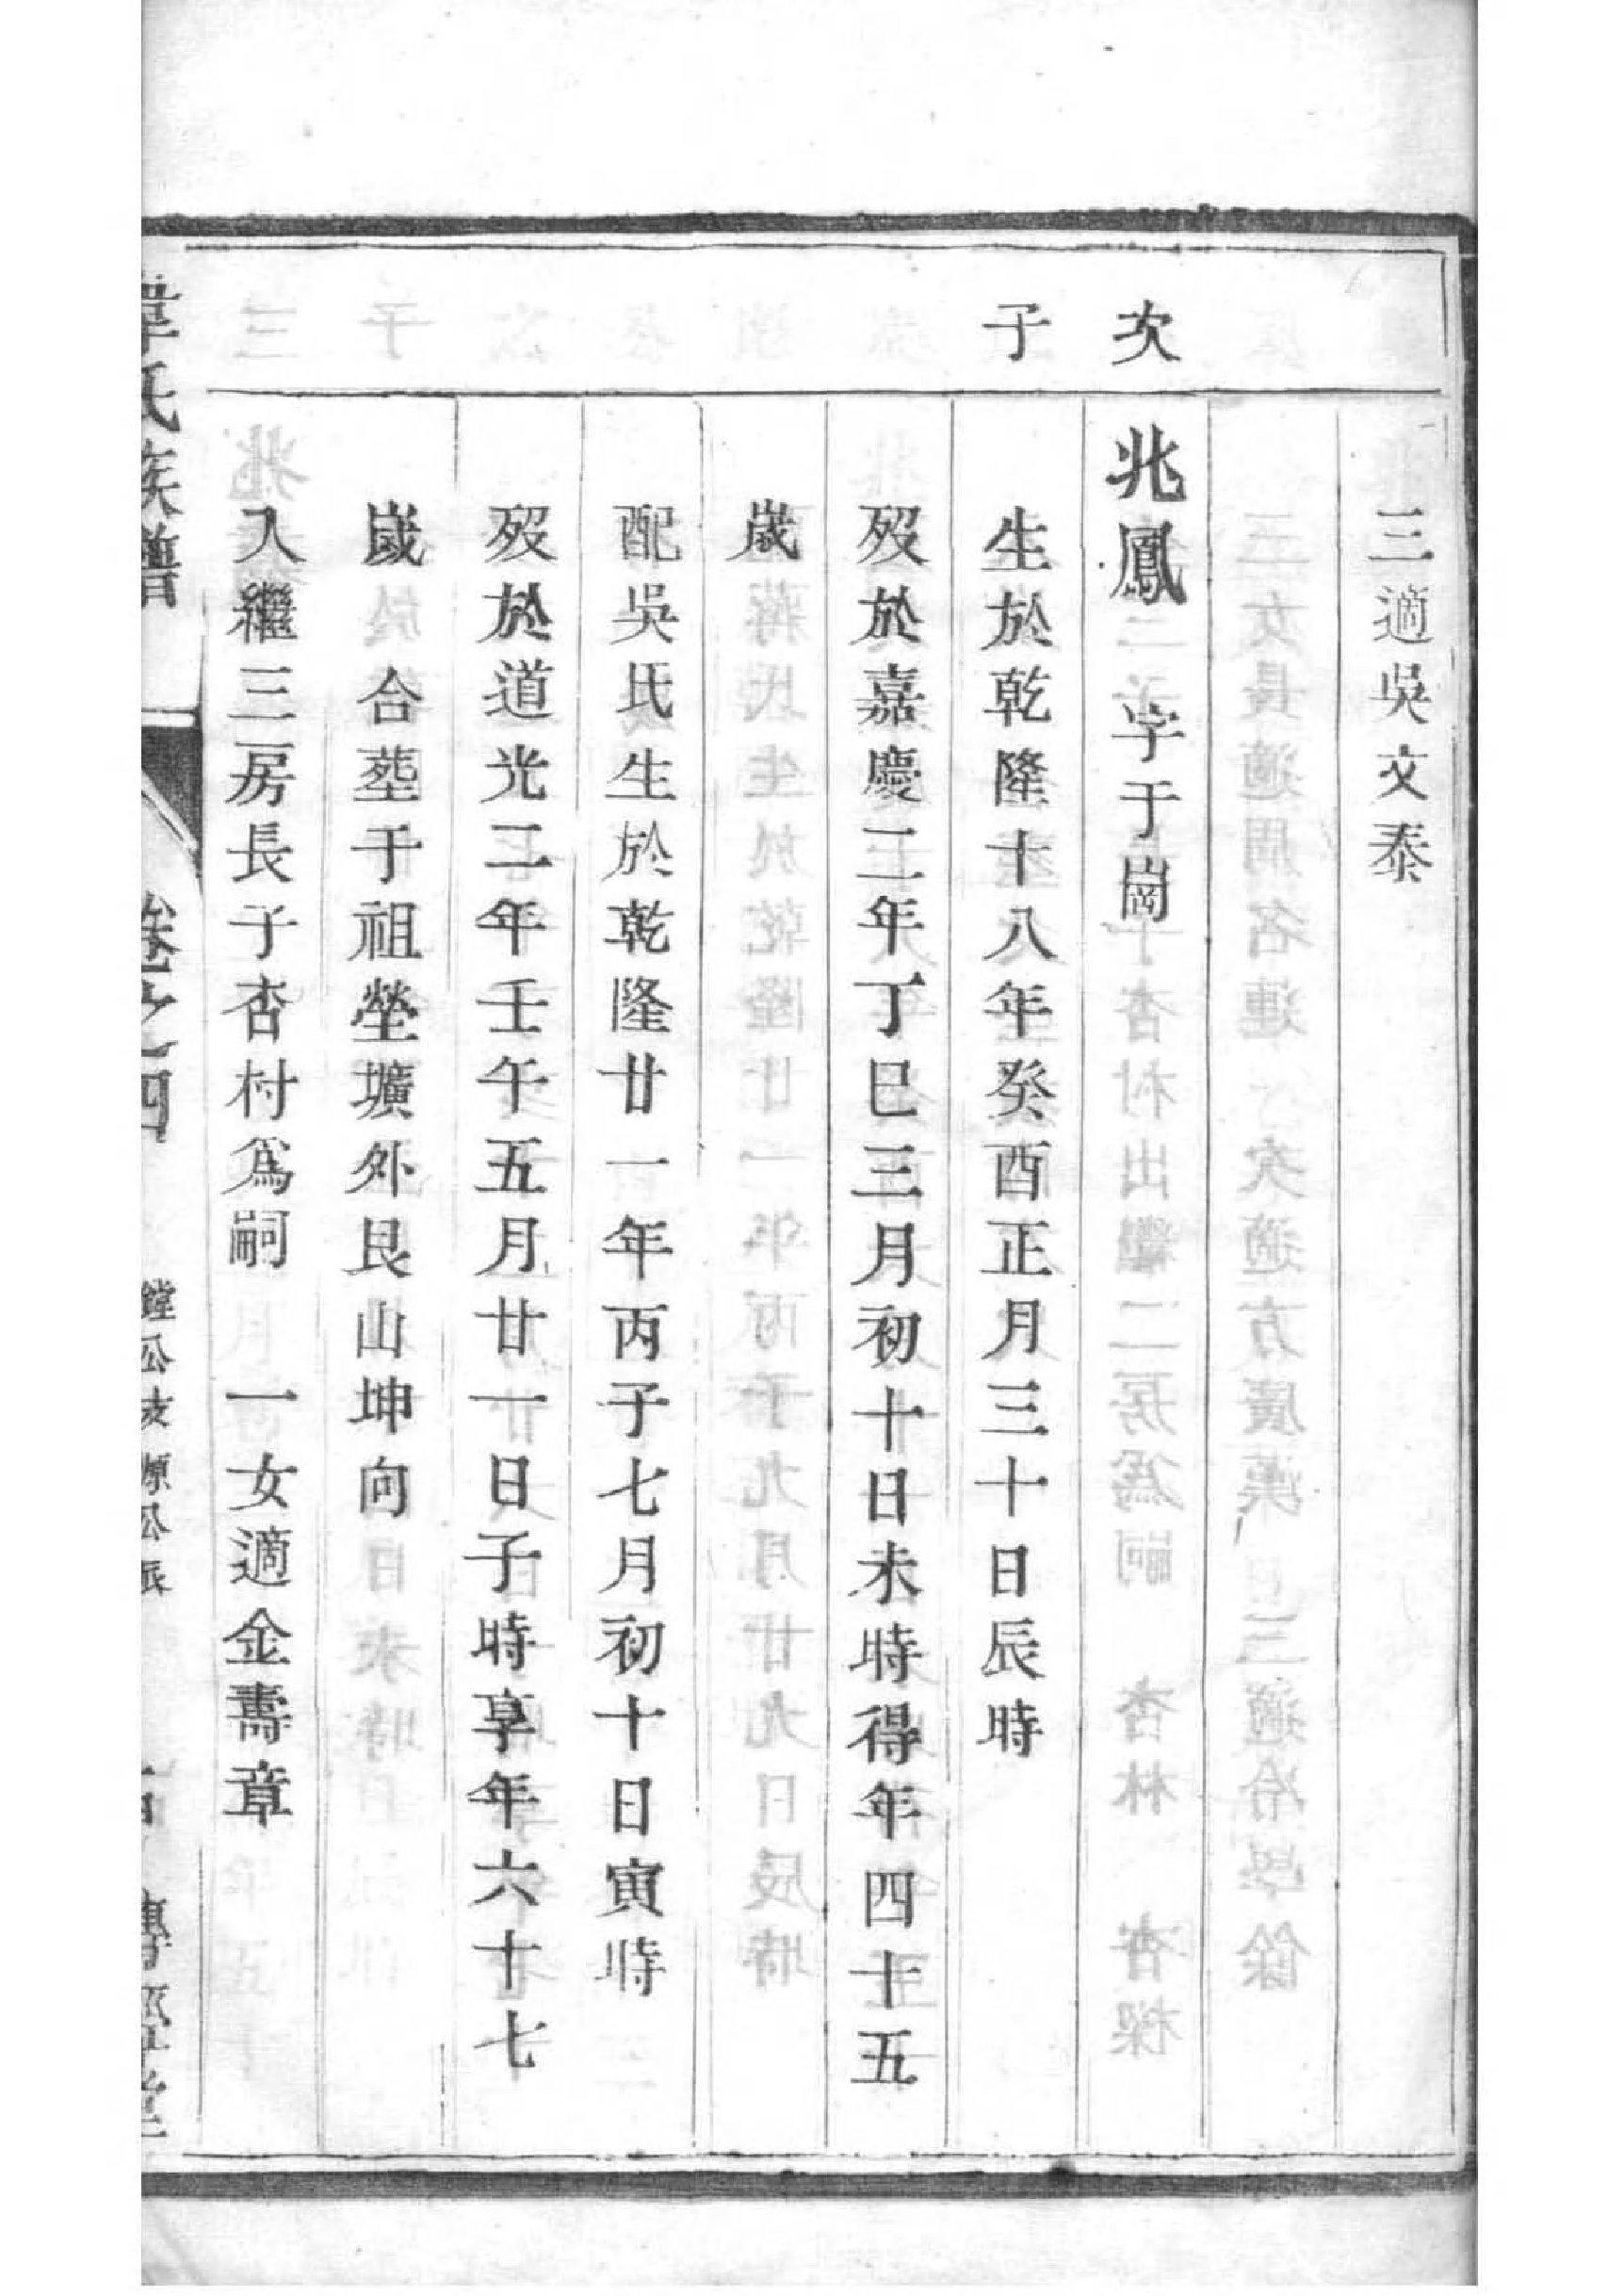 三適吳文泰
次
兆鳳字于崗
子
生於乾隆十八年癸酉正月三十日辰時
歿於嘉慶二年丁巳三月初十日未時得年四十五
歲
配吳氏生於乾隆廿一年丙子七月初十日寅時
歿於道光二年壬午五月廿一日子時享年六十七
歲 合塟于祖塋壙外艮山坤向
入繼三房長子杏村爲嗣 一女適金壽章
氏族譜 卷之四 鏜公支